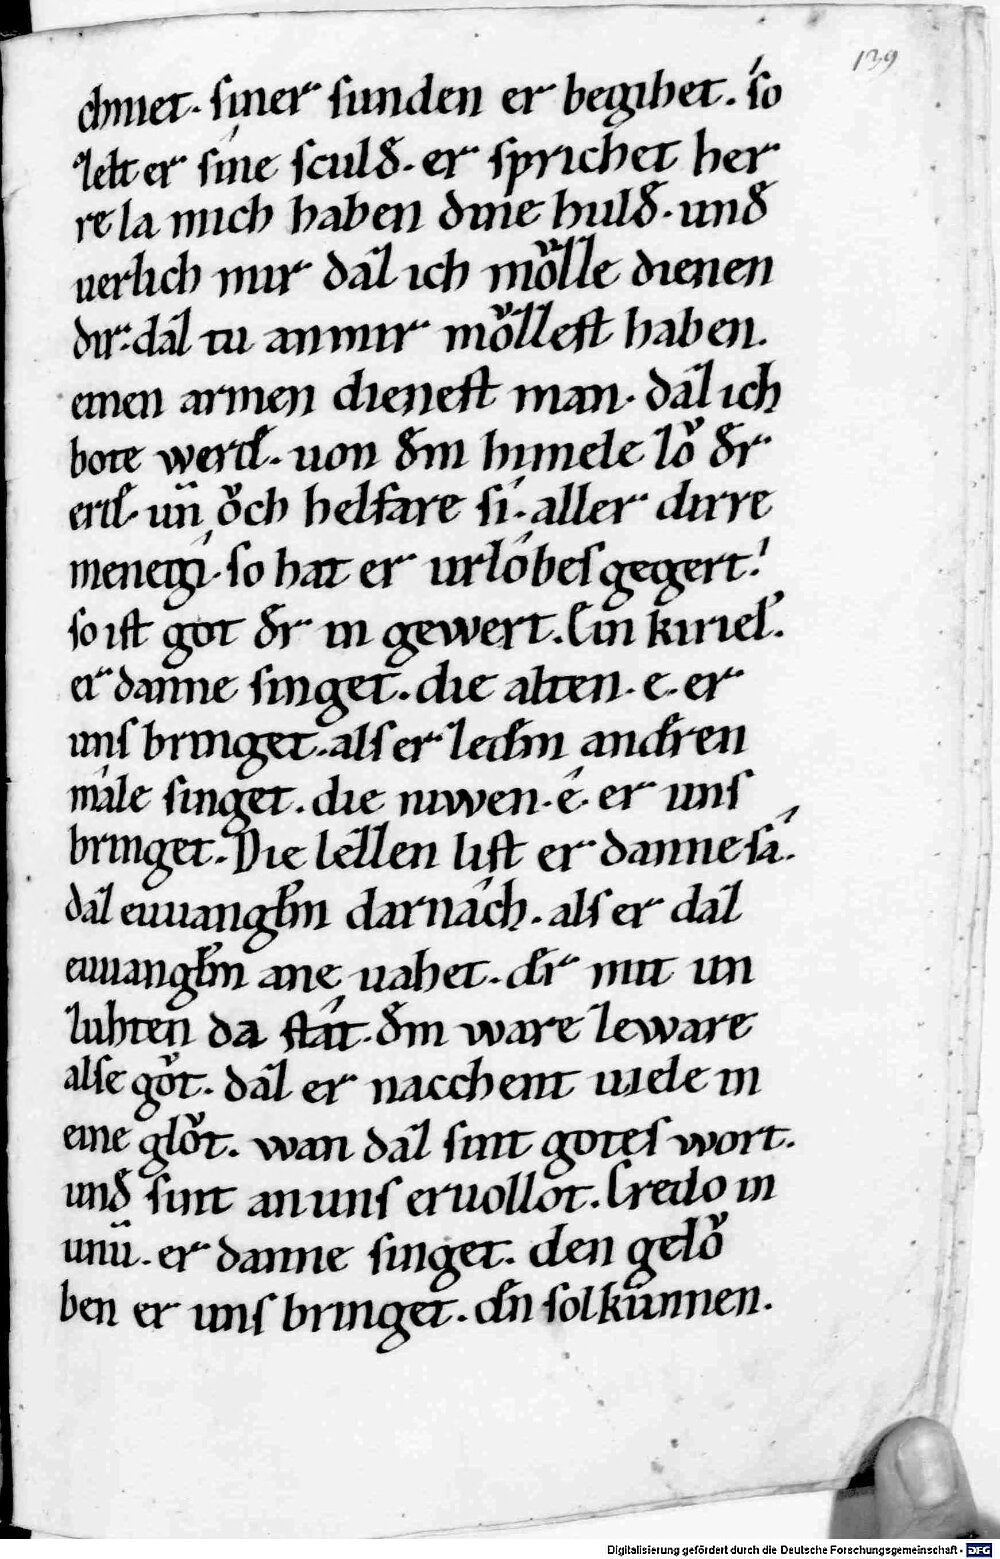 139
chniet. siner sunden er begihet. só
lebt er síne sculđ. er sprichet her
re la mich haben dine hulđ. unđ
uerlich mir dál ich moͮlle dienen
dir. dál tu an mir moͮllest haben.
einen armen dienest man. dál ich
bote werđ. uon đm himele loͮ đr
erđ. un̄ oͮch helfare sí. aller dirre
menegí. so hat er urlóbes gegert.
so ist got đr in gewert. Ein kiriel̓.
er danne singet. die alten. e. er
uns bringet. als er leđm anđren
mále singet. die niwen. é. er uns
bringet. Die léllen list er danne sá.
dál euuangl̄m darnách. als er dál
euuangl̄m ane uahet. đr mit un
luhten da stât. đm ware leware
alse goͮt. dál er nacchent uiele in
eine gloͮt. wan dál sint gotes wort.
unđ sint an uns eruollot. Credo in
unū. er danne singet. den geloͮ
ben er uns bringet. đn sol kunnen.
Digitalisierung gefördert durch die Deutsche Forschungsgemeinschaft - DFG